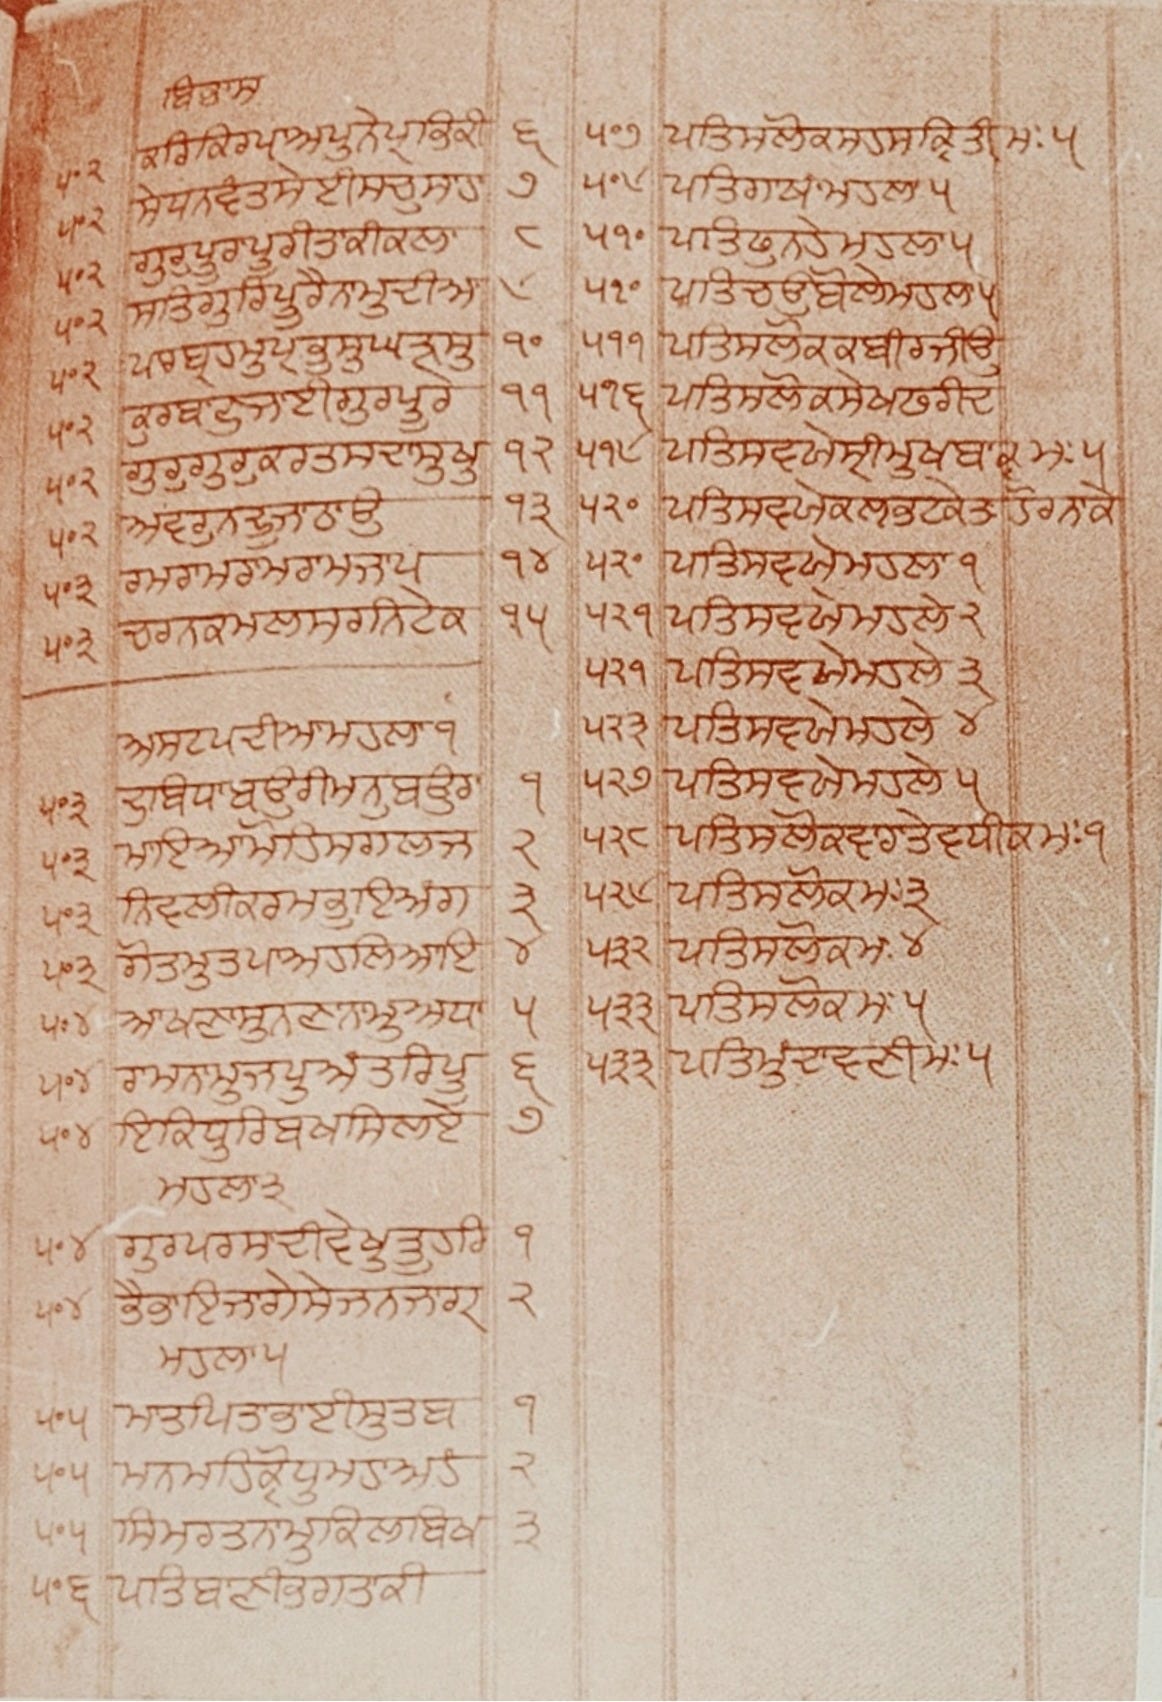 ਬਿਭਾਸ
੫੦੨ ਕਰਿ ਕਿਰਪਾ ਅਪੁਨੇ ਪ੍ਰਭਿ ਕੀ ੬
੫੦੨ ਸੇ ਧਨਵੰਤ ਸੇਈ ਸਚੁ ਸਾਹ ੭
੫੦੨ ਗੁਰੁ ਪੂਰਾ ਪੂਰੀ ਤਾ ਕੀ ਕਲਾ ੮
੫੦੨ ਸਤਿਗੁਰਿ ਪੂਰੈ ਨਾਮੁ ਦੀਆ ੯
੫੦੨ ਪਾਰਬ੍ਰਹਮੁ ਪ੍ਰਭੁ ਸੁਘੜ ਸੁ ੧੦
੫੦੨ ਕੁਰਬਾਣੁ ਜਾਈ ਗੁਰ ਪੂਰੇ ੧੧
੫੦੨ ਗੁਰੁ ਗੁਰੁ ਕਰਤ ਸਦਾ ਸੁਖੁ ੧੨
੫੦੨ ਅਵਰੁ ਨ ਦੂਜਾ ਠਾਉ ੧੩
੫੦੩ ਰਮ ਰਾਮ ਰਾਮ ਰਾਮ ਜਾਪ ੧੪
੫੦੩ ਚਰਨ ਕਮਲ ਸਰਨਿ ਟੇਕ ੧੫
ਅਸਟਪਦੀਆ ਮਹਲਾ ੧
੫੦੩ ਦੁਬਿਧਾ ਬਉਰੀ ਮਨੁ ਬਉਰਾ ੧
੫੦੩ ਮਾਇਆ ਮੋਹਿ ਸਗਲ ਜ ੨
੫੦੩ ਨਿਵਲੀ ਕਰਮ ਭੁਇਅੰਗ ੩
੫੦੩ ਗੋਤਮੁ ਤਪਾ ਅਹਲਿਆ ਇ ੪
੫੦੪ ਆਖਣਾ ਸੁਨਣਾ ਨਾਮੁ ਅਧਾ ੫
੫੦੪ ਰਾਮ ਨਾਮੁ ਜਪੁ ਅੰਤਰਿ ਪੂ ੬
੫੦੪ ਇਕਿ ਧੁਰਿ ਬਖਸਿ ਲਏ ੭
ਮਹਲਾ ੩
੫੦੪ ਗੁਰ ਪਰਸਾਦੀ ਵੇਖੁ ਤੂ ਹਰਿ ੧
੫੦੪ ਭੈ ਭਾਇ ਜਾਗੇ ਸੇ ਜਨ ਜਾਗ੍ਰ ੨
ਮਹਲਾ ੫
੫੦੫ ਮਾਤ ਪਿਤਾ ਭਾਈ ਸੁਤ ਬ ੧
੫੦੫ ਮਨ ਮਹਿ ਕ੍ਰੋਧੁ ਮਹਾ ਅਹੰ ੨
੫੦੫ ਸਿਮਰਤ ਨਾਮੁ ਕਿਲਬਿਖ ੩
੫੦੬ ਪਤਿ ਬਾਣੀ ਭਗਤਾ ਕੀ
੫੦੭ ਪਤਿ ਸਲੋਕ ਸਹਸਕ੍ਰਿਤੀ ਮਃ ੫
੫੦੯ ਪਤਿ ਗਾਥਾ ਮਹਲਾ ੫
੫੧੦ ਪਤਿ ਫੁਨਹੇ ਮਹਲਾ ੫
੫੧੦ ਪਤਿ ਚਉਬੋਲੇ ਮਹਲਾ ੫
੫੧੧ ਪਤਿ ਸਲੋਕ ਕਬੀਰ ਜੀਉ
੫੧੬ ਪਤਿ ਸਲੋਕ ਸੇਖ ਫਰੀਦ
੫੧੯ ਪਤਿ ਸਵਯੇ ਸ੍ਰੀ ਮੁਖ ਬਾਕ੍ਯ ਮਃ ੫
੫੨੦ ਪਤਿ ਸਵਯੇ ਕਲ ਭਟ ਕੇ ਤ ਹੋਰਨਾ ਕੇ
੫੨੦ ਪਤਿ ਸਵਯੇ ਮਹਲਾ ੧
੫੨੧ ਪਤਿ ਸਵਯੇ ਮਹਲੇ ੨
੫੨੧ ਪਤਿ ਸਵਯੇ ਮਹਲੇ ੩
੫੨੩ ਪਤਿ ਸਵਯੇ ਮਹਲੇ ੪
੫੨੭ ਪਤਿ ਸਵਯੇ ਮਹਲੇ ੫
੫੨੮ ਪਤਿ ਸਲੋਕ ਵਾਰਾ ਤੇ ਵਧੀਕ ਮਃ ੧
੫੨੯ ਪਤਿ ਸਲੋਕ ਮਃ ੩
੫੩੨ ਪਤਿ ਸਲੋਕ ਮਃ ੪
੫੩੩ ਪਤਿ ਸਲੋਕ ਮਃ ੫
੫੩੩ ਪਤਿ ਮੁੰਦਾਵਣੀ ਮਃ ੫